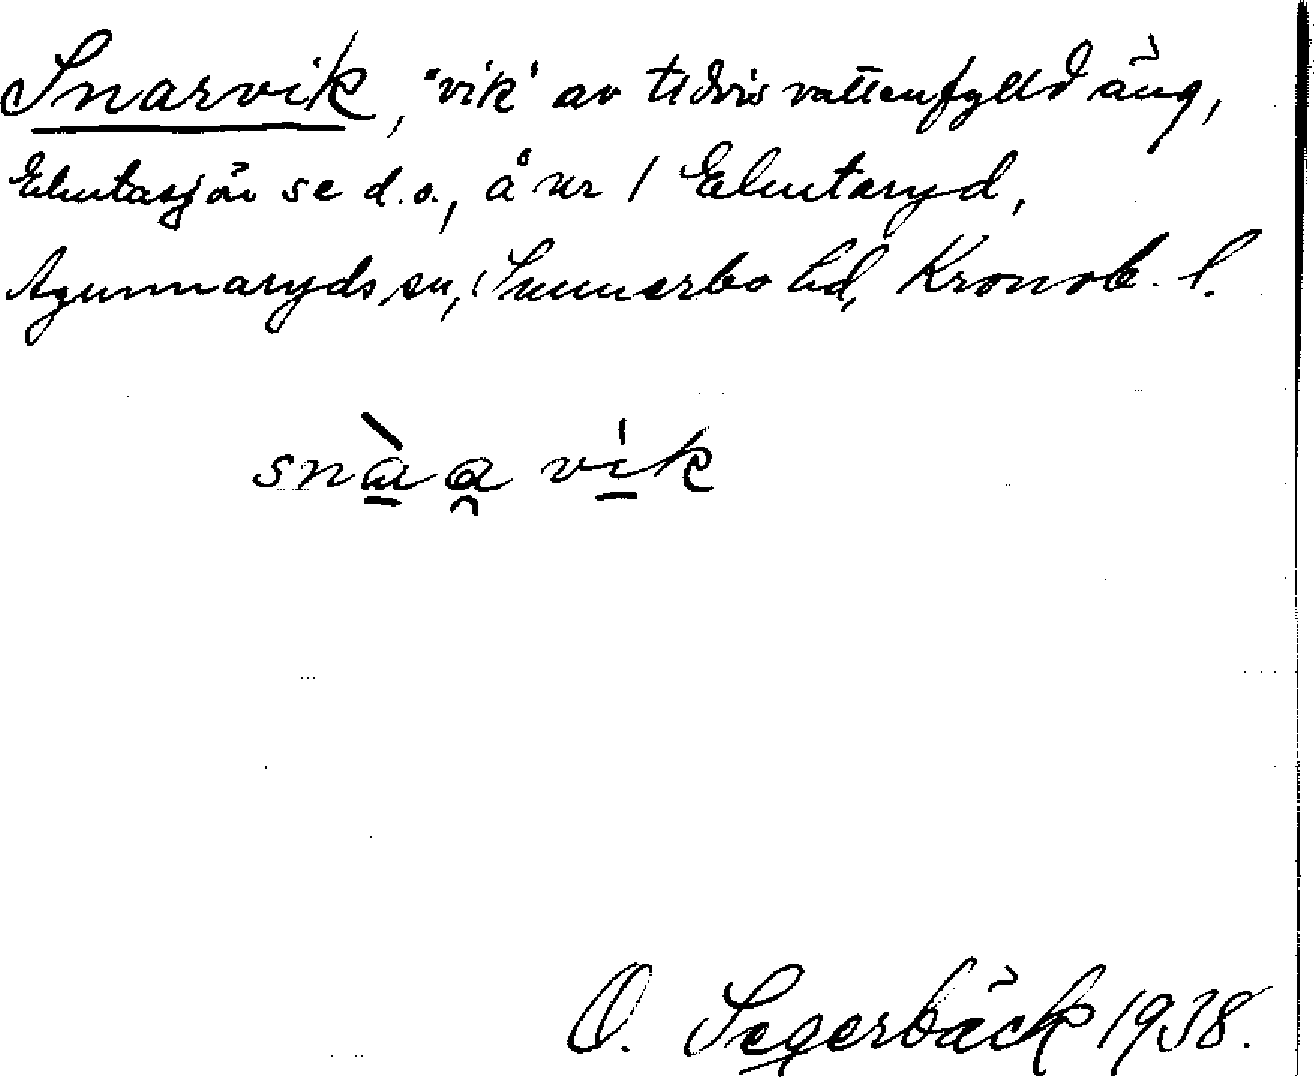 Snarvik, "vik" av tidvis vattenfylld äng,
Elmtasjön se d.o., å nr 1 Elmtaryd,
Agunnaryds sn, Sunnerbo hd, Kronob. l.
snàa̯ vik
O. Segerbäck 1938.